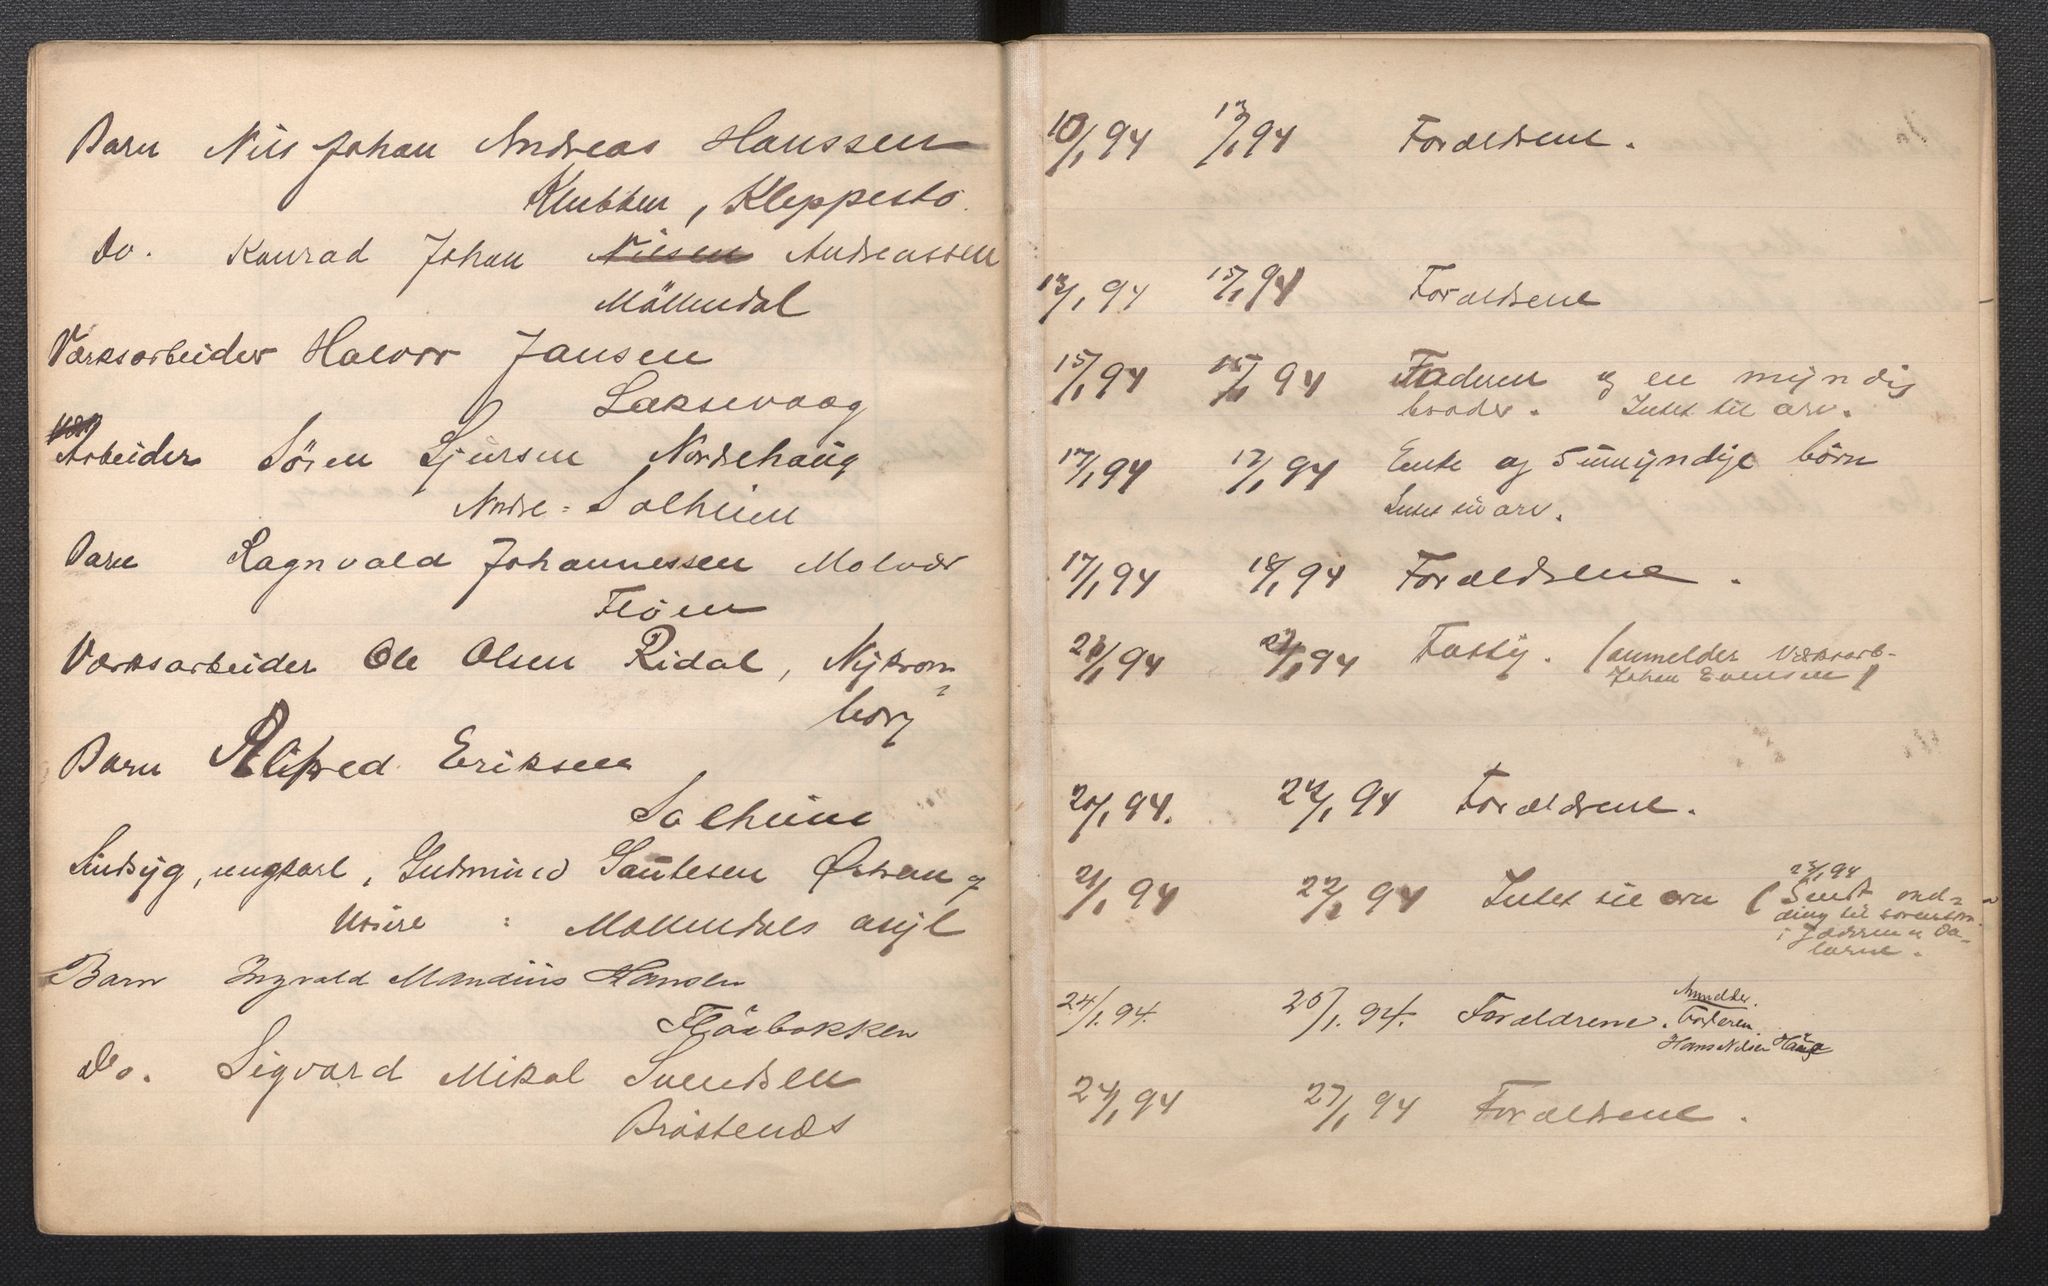 Barn Nils Johan Andreas Hanssen
Klubben, Kleppestö.
Do. Konrad Johan Nilsen Andreassen
Möllendal
Værksarbeider Halvor Jansen
Laksevaag
Arbeider Sören Sjursen Nordrehaug
Nedre = Solheim
Barn Ragnvald Johannessen Molvær
Flöen
Værksarbeider Ole Olsen Ridal, Nykron=
borg
Barn Alfred Eriksen
Solheim
Sindsyg, ungkarl, Gudmund Samuelsen
: Möllendals asyl
Barn Ingvald Mandius Hansen
Flöibakken
Do. Sigvard Mikal Svendsen
Bröstenæs
10/1 94 13/1 94 Forældrene.
13/1 94 15/1 94 Forældrene
15/1 94 15/1 94 Faderen og en myndig
broder. Intet til arv.
17/1 94 17/1 94 Enke og 5 umyndige börn
Intet til arv.
17/1 94 18/1 94 Forældrene.
94 94 Fattig. (anmelder Værksarb-
Johan Evensen)
20/1 94. 22/1 94 Forældrene.
21/1 94 22/1 94 Intet til arv (23/1 94
Sendt med=
ding til sorenskr.
i Jæderen og Da-
larne.
24/1. 94. 25/1. 94. Forældrene. Anmelder.
Faderen.
Hans Nilsen
24/1 94 27/1 94 Forældrene.